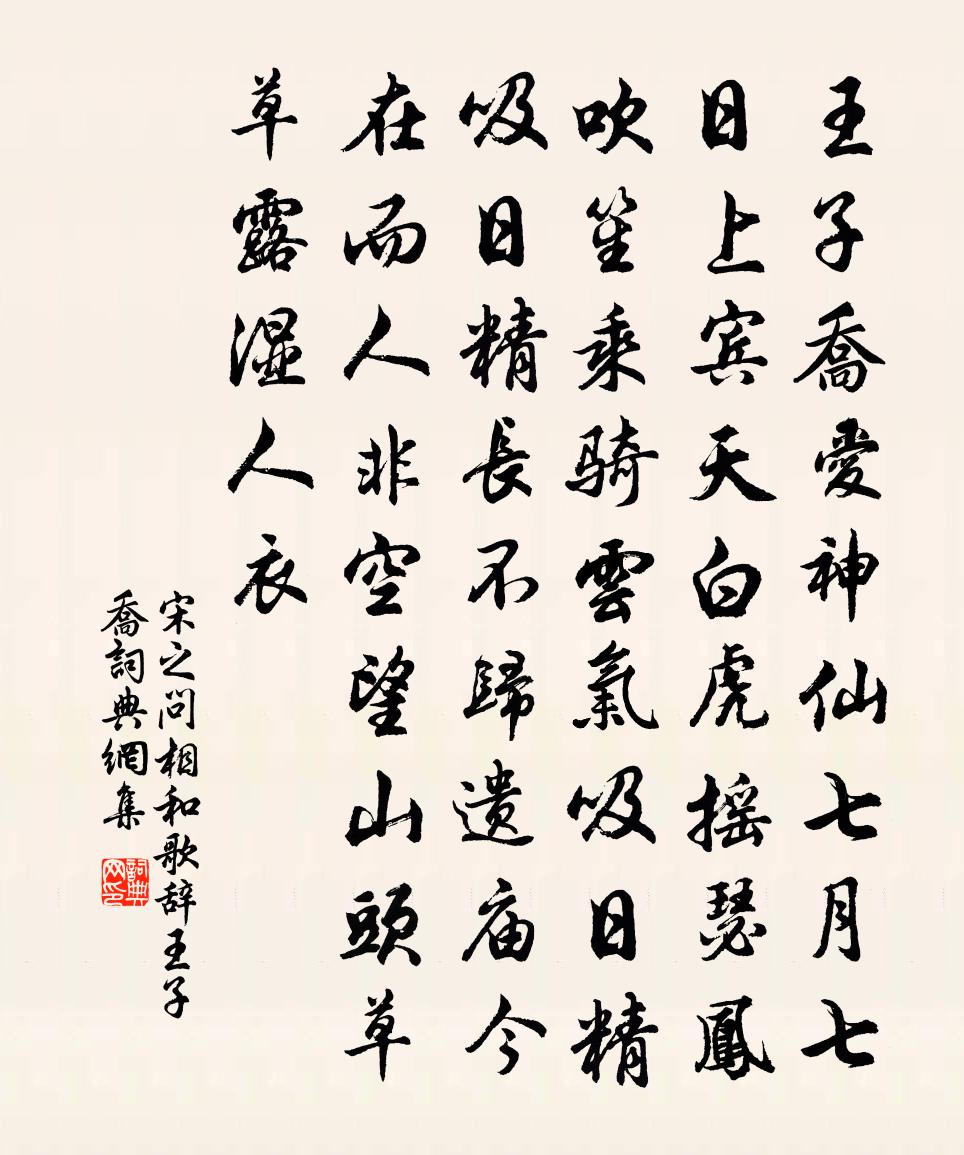 王子喬愛神仙七月七
日上宾天白虎摇瑟鳳
吹笙乘騎雲氣吸日精
吸日精長不歸遗庙今
在而人非空望山頭草
草露湿人衣
宋之问相和歌辞王子
喬詞典網集
詞典网印